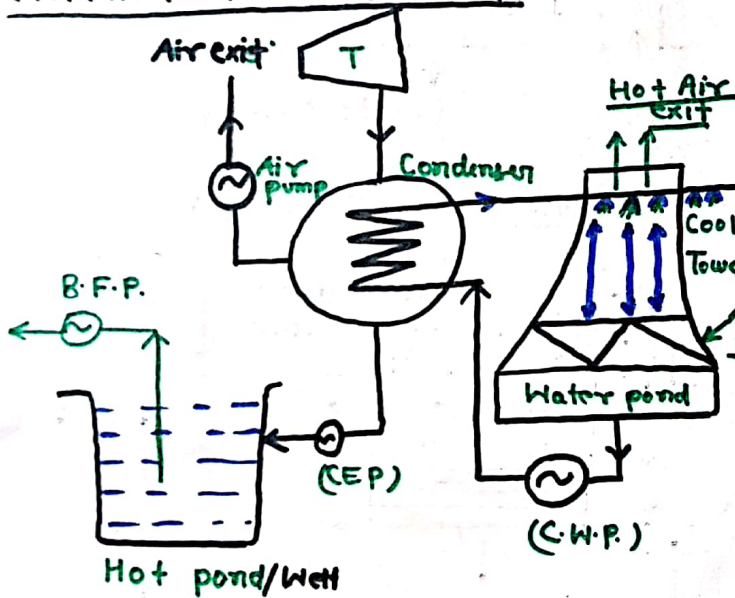 Air exit
T
Hot Air
exit
Air
pump
Condenser
B.F.P.
Water pond
(CEP)
(C.W.P.)
Hot pond/Well